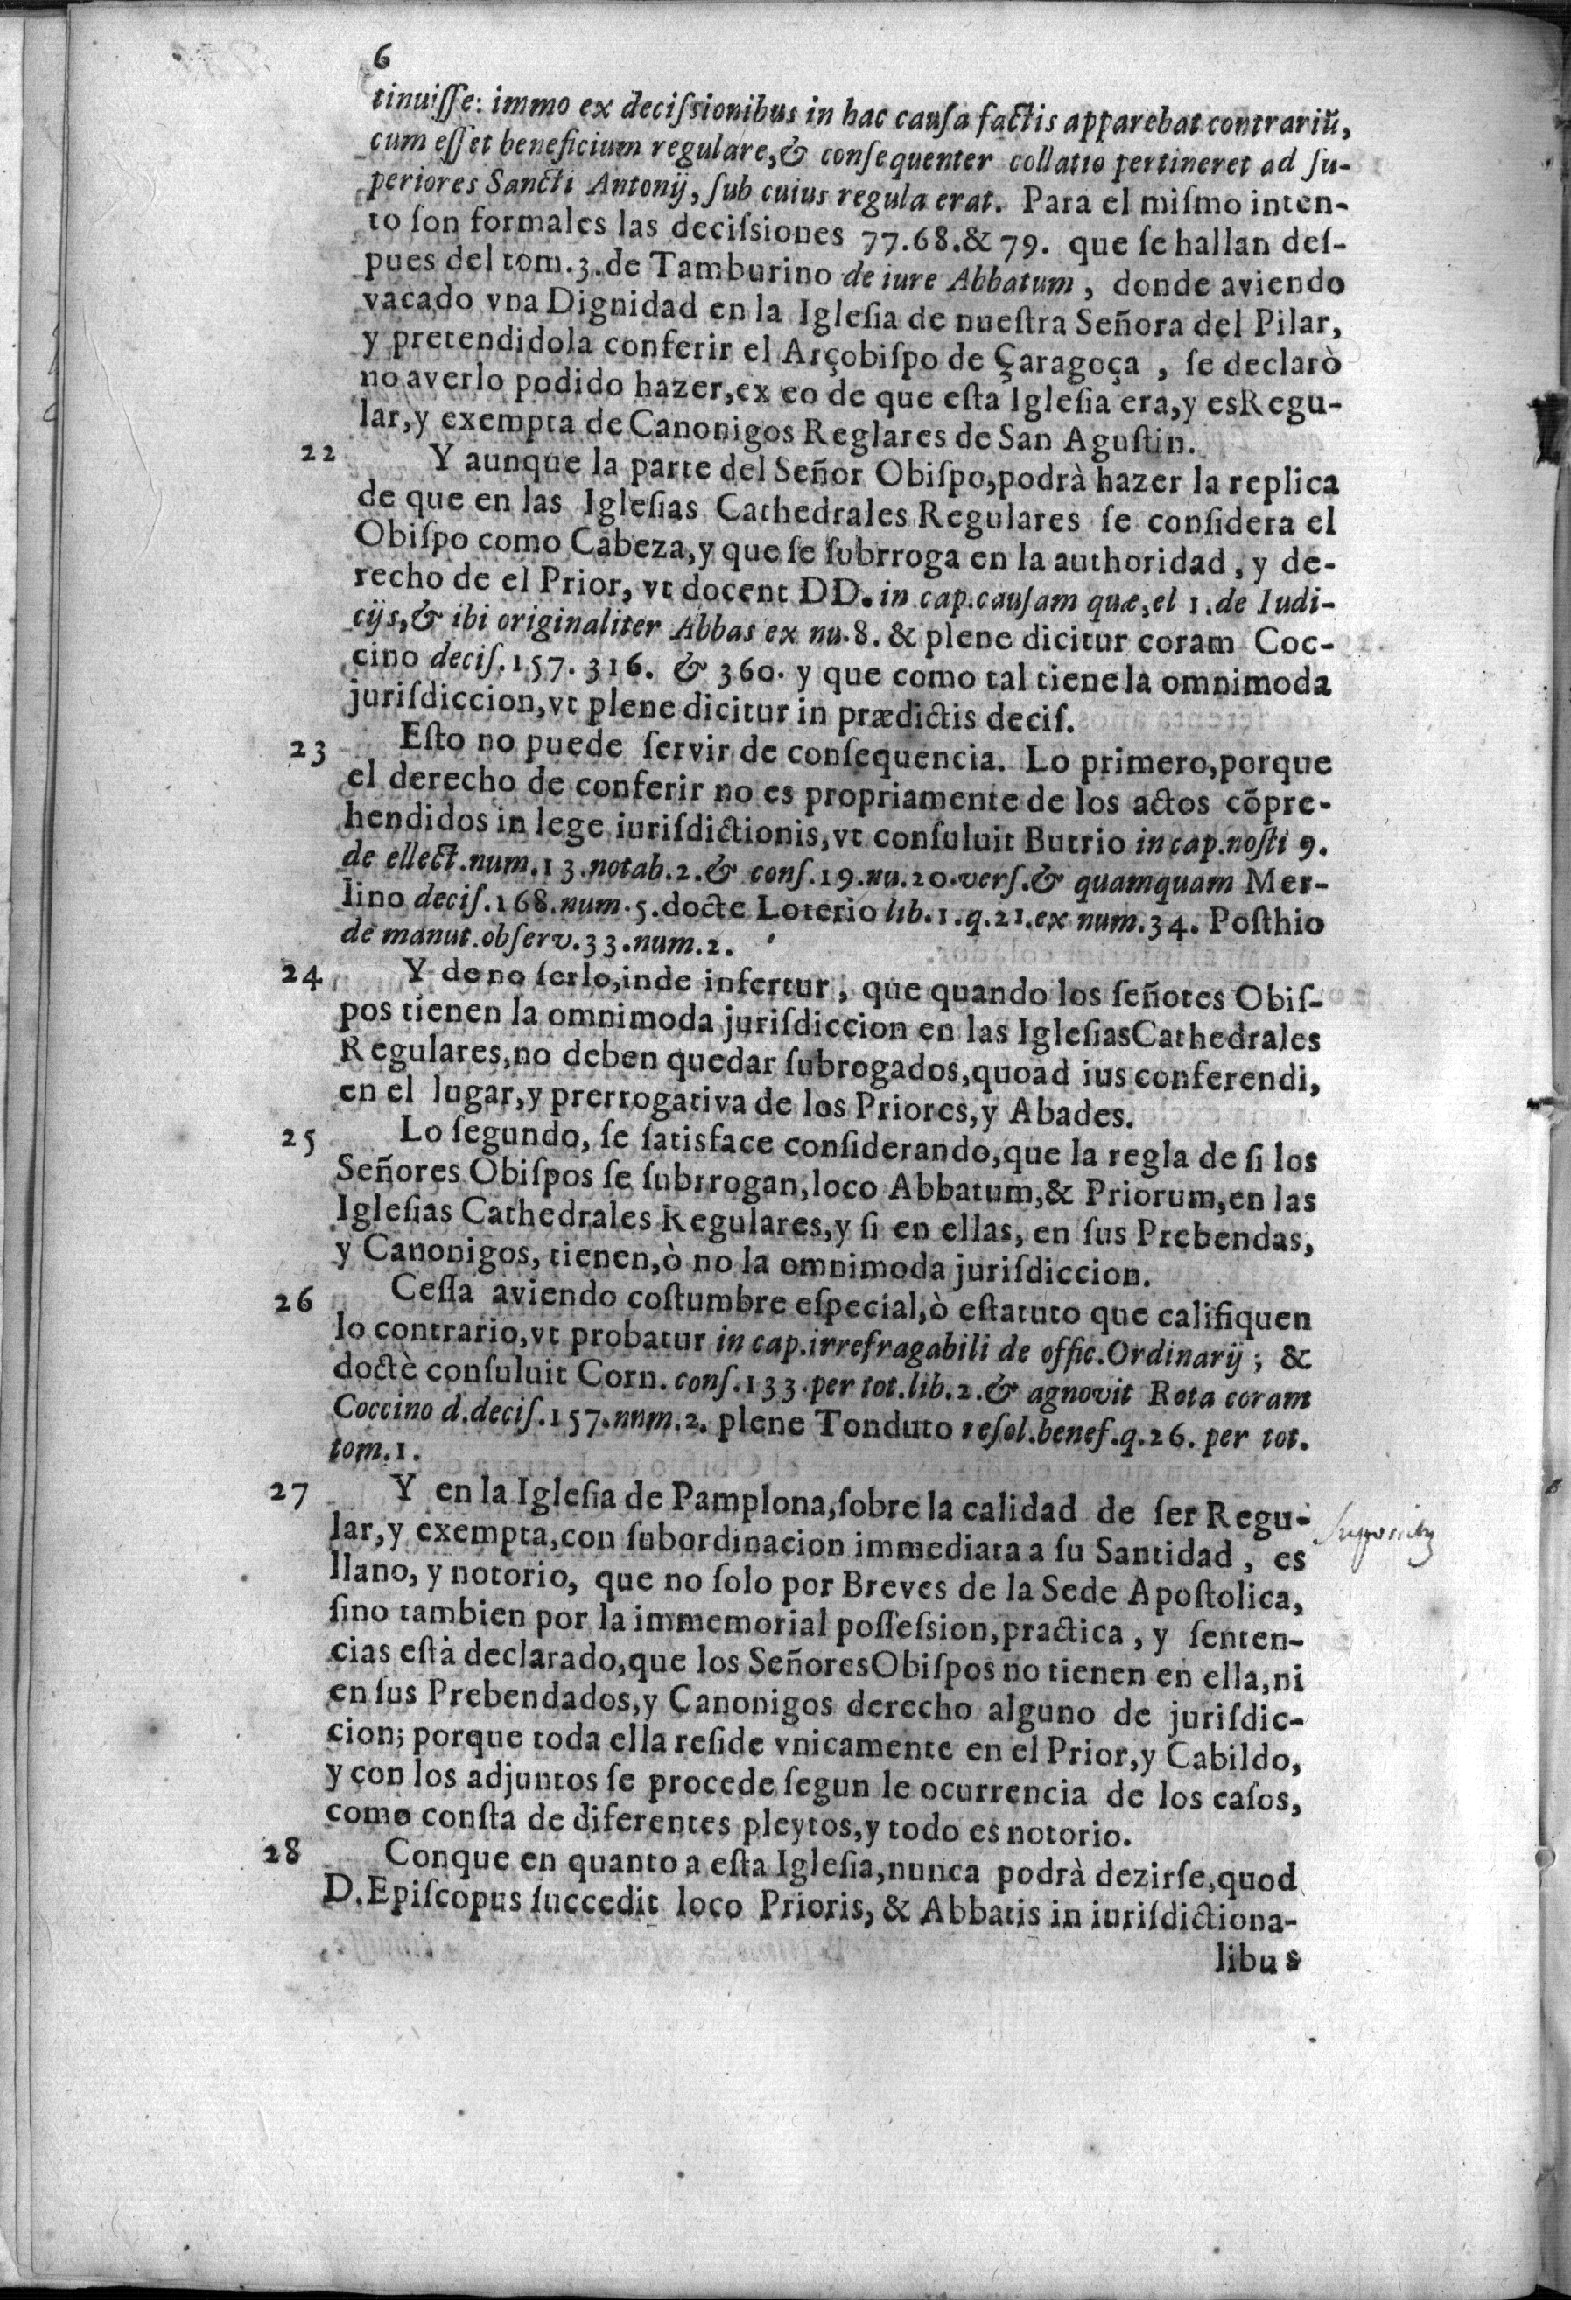 6
tinuiſſe: immo ex deciſsionibus in hac cauſa factis apparebat contrariũ,
cum eſſet beneficium regulare, & conſequenter collatio pertineret ad ſu-
periores Sancti Antonij, ſub cuius regula erat. Para el miſmo inten-
to ſon formales las deciſsiones 77.68.& 79. que ſe hallan deſ-
pues del tom.3.de Tamburino de iure Abbatum, donde aviendo
vacado vna Dignidad en la Igleſia de nueſtra Señora del Pilar,
y pretendidola conferir el Arçobiſpo de Çaragoça, ſe declarò
no averlo podido hazer, ex eo de que eſta Igleſia era, y es Regu-
lar, y exempta de Canonigos Reglares de San Aguſtin.
22 Y aunque la parte del Señor Obiſpo, podrà hazer la replica
de que en las Igleſias Cathedrales Regulares ſe conſidera el
Obiſpo como Cabeza, y que ſe ſubrroga en la authoridad, y de-
recho de el Prior, vt docent DD. in cap.cauſam quæ, el 1.de Iudi-
cijs, & ibi originaliter Abbas ex nu.8. & plene dicitur coram Coc-
cino deciſ.157. 316. & 360. y que como tal tiene la omnimoda
juriſdiccion, vt plene dicitur in prædictis deciſ.
23 Eſto no puede ſervir de conſequencia. Lo primero, porque
el derecho de conferir no es propriamente de los actos cõpre-
hendidos in lege iuriſdictionis, vt conſuluit Butrio in cap.noſti 9.
de ellect.num.13.notab.2.& conſ.19.nu.20.verſ.& quamquam Mer-
lino deciſ.168.num.5.docte Loterio lib.1.q.21.ex num.34. Poſthio
de manut.obſerv.33.num.2.
24 Y de no ſerlo, inde infertur, que quando los ſeñores Obiſ-
pos tienen la omnimoda juriſdiccion en las Igleſias Cathedrales
Regulares, no deben quedar ſubrogados, quoad ius conferendi,
en el lugar, y prerrogativa de los Priores, y Abades.
25 Lo ſegundo, ſe ſatisface conſiderando, que la regla de ſi los
Señores Obiſpos ſe ſubrrogan, loco Abbatum, & Priorum, en las
Igleſias Cathedrales Regulares, y ſi en ellas, en ſus Prebendas,
y Canonigos, tienen, ò no la omnimoda juriſdiccion.
26 Ceſſa aviendo coſtumbre eſpecial, ò eſtatuto que califiquen
lo contrario, vt probatur in cap.irrefragabili de offic.Ordinarij; &
doctè conſuluit Corn. conſ.133.per tot.lib.2.& agnovit Rota coram
Coccino d.deciſ.157.num.2. plene Tonduto reſol.benef.q.26. per tot.
tom.1.
27 Y en la Igleſia de Pamplona, ſobre la calidad de ſer Regu-
lar, y exempta, con ſubordinacion immediata a ſu Santidad, es
llano, y notorio, que no ſolo por Breves de la Sede Apoſtolica,
ſino tambien por la immemorial poſſeſsion, practica, y ſenten-
cias eſtà declarado, que los Señores Obiſpos no tienen en ella, ni
en ſus Prebendados, y Canonigos derecho alguno de juriſdic-
cion; porque toda ella reſide vnicamente en el Prior, y Cabildo,
y con los adjuntos ſe procede ſegun le ocurrencia de los caſos,
como conſta de diferentes pleytos, y todo es notorio.
28 Conque en quanto a eſta Igleſia, nunca podrà dezirſe, quod
D. Epiſcopus ſuccedit loco Prioris, & Abbatis in iuriſdictiona-
libus